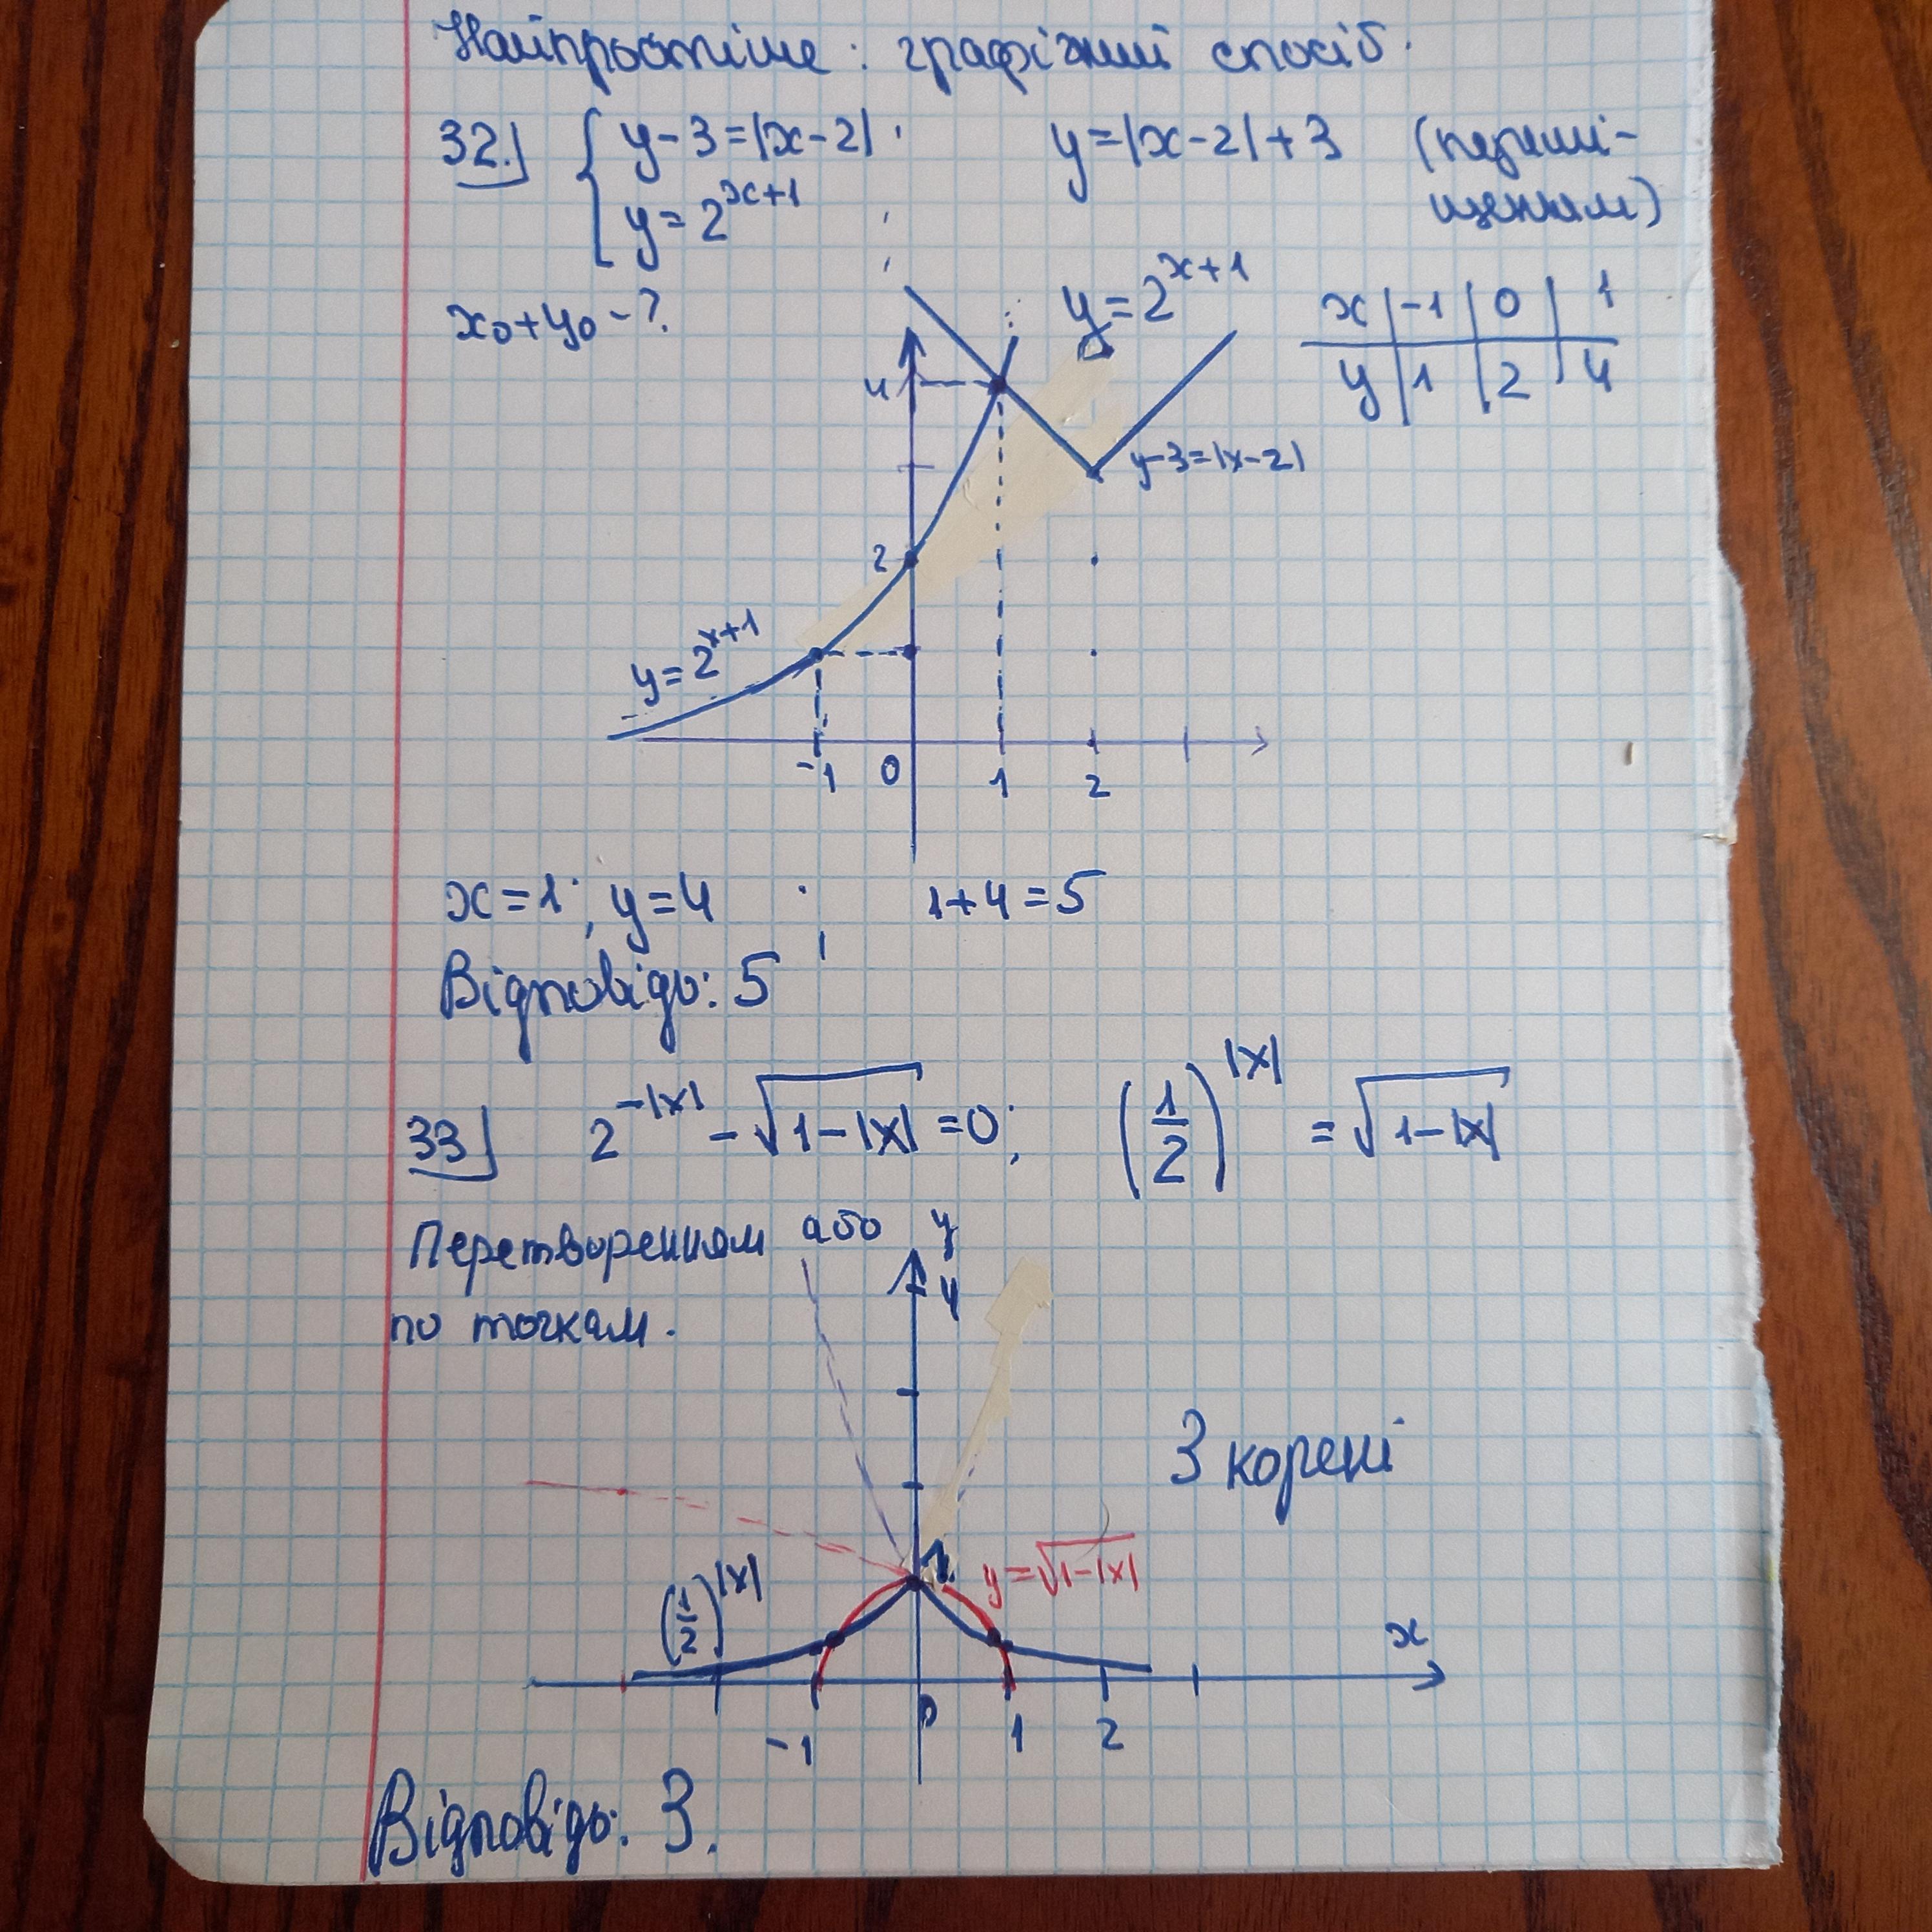 Найпростіше: графічний спосіб.
32.] { y-3=|x-2| y=|x-2|+3 (переміщенням)
y=2^(x+1)
x0+y0-?
y=2^(x+1)
x | -1 | 0 | 1
y | 1 | 2 | 4
4
y-3=|x-2|
2
y=2^(x+1)
-1 0 1 2
x=1; y=4 1+4=5
Відповідь: 5
33] 2^(-|x|) - √(1-|x|) = 0; (1/2)^|x| = √(1-|x|)
Перетворенням або
по точкам.
y
4
3 корені
1
(1/2)^|x|
y=√(1-|x|)
x
-1 0 1 2
Відповідь: 3.